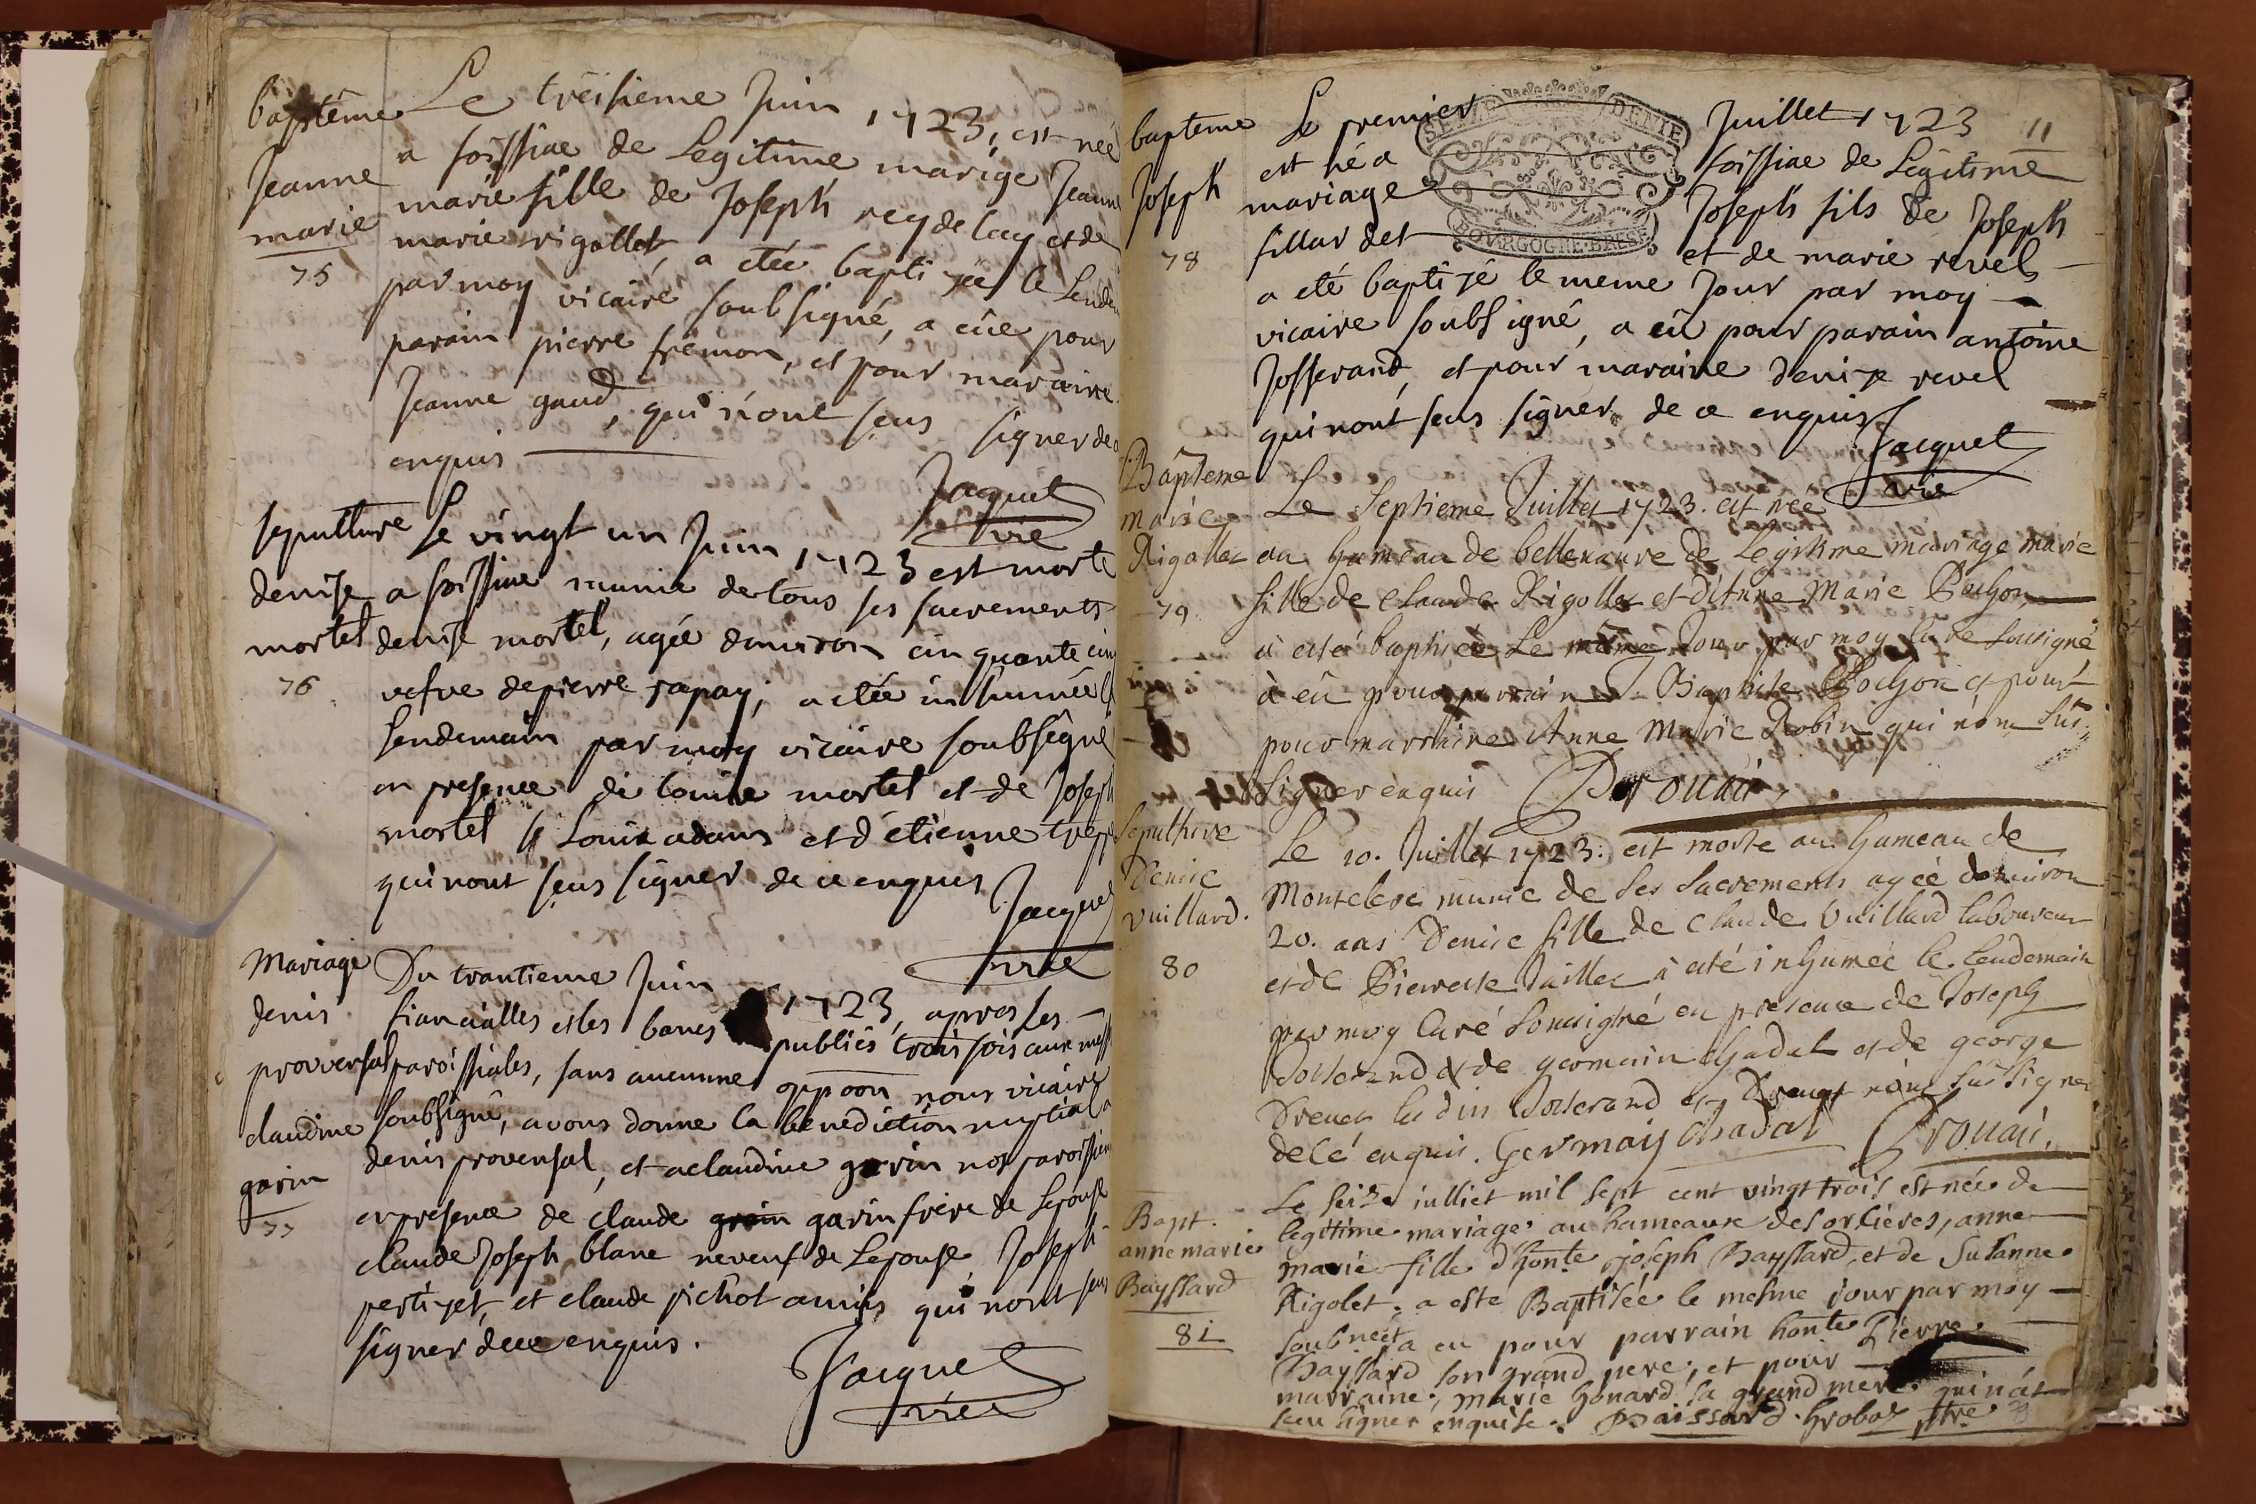 baptême
Jeanne
marie
75
Le treisieme Juin 1723, est née
a foissiae de Legitime marige Jeanne
marie fille de Joseph reydelay et de
marie rigollet, a etée baptizée le Lende
par moy vicaire soubsigné, a eüe pour
parain pierre fremon, et pour maraine
Jeanne gaud, qui n'ont seus signer de
enquis
Jacquet
vre
sepulture
denise
mortel
76
Le vingt un Juin 1723 est morte
a foissiae munie de tous ses sacrements
denise mortel, agée d'environ cinquante cinq
vefve de pierre papay, a etée inhumée
Lendemain par moy vicaire soubsigné
en presence de mortel et de Joseph
mortel Louis adam et d'etienne
qui n'ont seus signer de ce enquis
Jacquet
vre
Mariage
denis
prouvensal
claudine
garin
77
Du trantieme Juin 1723, apres les
fiancialles et les bancs publiés trois fois aux mess
paroissiales, sans aucunne oppoon nous vicaire
soubsigné, avons donne la benediction nuptial a
denis provensal, et a claudine garin nos paroissiens
en presence de claude garin frere de Lepouse
claude Joseph blanc neveuf de Lepouse Joseph
pertizet, et claude pichot amis qui n'ont seus
signer de ce enquis.
Jacquet
vre
11
SEINE DENIE
BOURGOGNE BRESSE
bapteme
Joseph
78
Le premier Juillet 1723
est né a foissiae de Legitime
mariage Joseph fils de Joseph
fillardet et de marie revel
a eté baptizé le meme Jour par moy
vicaire soubsigné, a eü pour parain antoine
Josserand, et pour maraine denize revel
qui n'ont seus signer de ce enquis
Jacquet
vre
Bapteme
marie
Rigollet
79
Le Septieme Juillet 1723. est née
au hameau de bellenauve de Legitime mariage marie
fille de Claude Rigollet et d'Anne Marie Pochon
à eté baptisée Le même Jour par moy Curé soussigné
à eü pour parrain J. Baptiste Pochon et pour
pour marraine Anne Marie Robin qui n'ont sus
signer enquis Drouaü
sepulture
Denise
Vuillard.
80
Le 10. Juillet 1723. est morte au hameau de
Montelere munie de ses sacrements agée denviron
20. ans Denise fille de Claude Vuillard laboureur
et de Pierrette Jaillet à eté inhumée le lendemain
par moy Curé soussigné en presence de Joseph
Josserand & de germain Chadal et de george
Drevet Ledit Josserand et Drevet n'ont sus signer
de Cé enquis. Germain Chadal Drouaü.
Bapt.
anne marie
Bayssard
81
Le seize iulliet mil sept cent vingt trois est née de
legitime mariage au hameaux des orcieres, anne
marie fille d'honte joseph Bayssard, et de Susanne
Rigolet. a este Baptisée le mesme iour par moy
soubnée a eu pour parrain honte Pierre
Bayssard son grand pere, et pour
marraine, marie honard sa grand mere qui n'at
seu signer enquise. Baissard. Grobas ptre